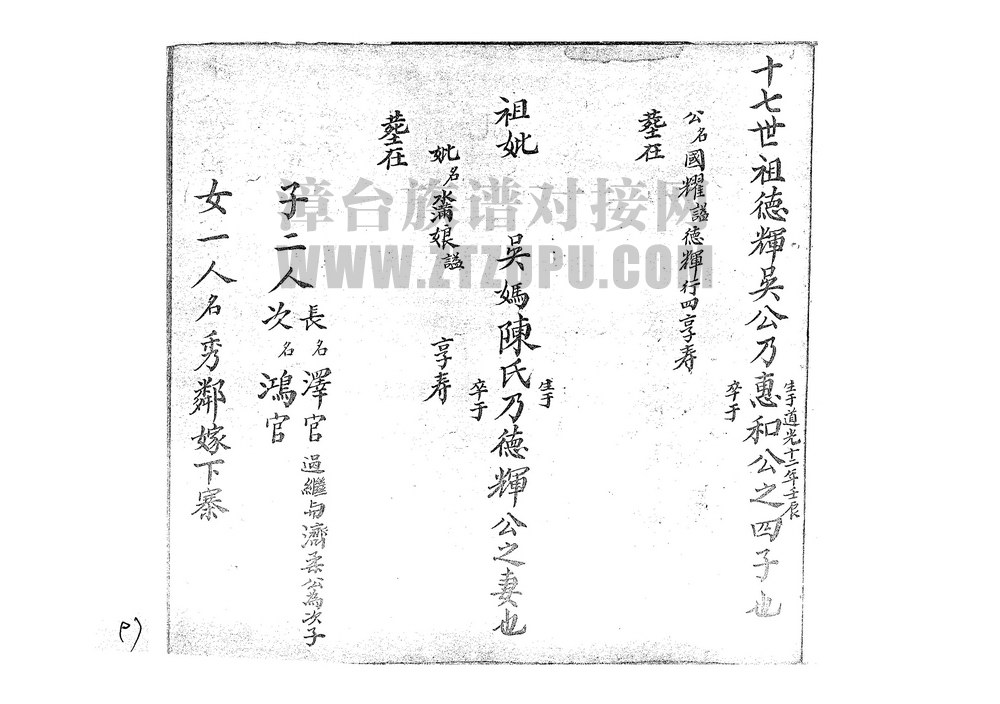 十七世祖德輝吳公乃惠和公之四子也
生于道光十二年壬辰
卒于
公名國耀諡德輝行四享寿
塟在
祖妣
吳媽陳氏乃德輝公之妻也
生于
卒于
妣名 娘諡
享寿
塟在
子二人
長名澤官過繼与濟柔公為次子
次名鴻官
女一人名秀鄰嫁下寨
漳台族谱对接网
WWW.ZTZUPU.COM